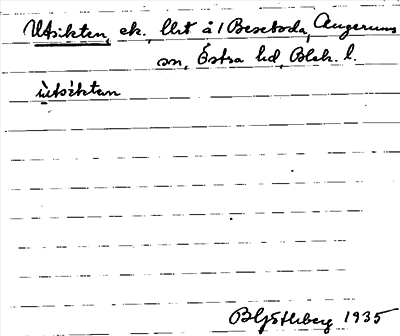 Utsikten, ek., lht å 1 Beseboda, Augerums
sn, Östra hd, Blek. l.
ùtsìktan
B Götlberg 1935